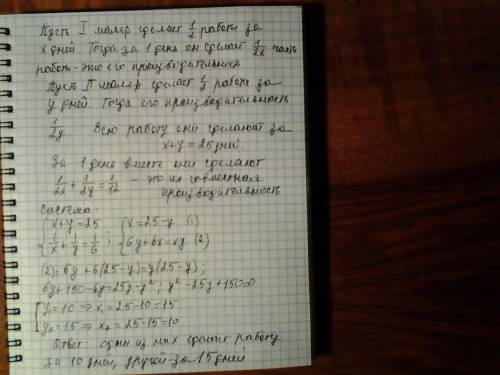 Пусть I маляр сделает 1/2 работы за
x дней. Тогда за 1 день он сделает 1/2x часть
работы - это его производительность
Пусть II маляр сделает 1/2 работы за
y дней. Тогда его производительность
1/2y. Всю работу они сделают за
x+y=25дней.
За 1 день вместе они сделают
1/2x + 1/2y = 1/12 - это их совместная
производительность
Система:
{x+y=25 {x=25-y (1)
{1/x+1/y=1/6 ; {6y+6x=xy (2)
(2): 6y+6(25-y)=y(25-y);
6y+150-6y=25y-y²; y²-25y+150=0
[y₁=10 ⇒ x₁=25-10=15
[y₂=15 ⇒ x₂=25-15=10
Ответ: один из них сделает работу
за 10 дней, другой-за 15 дней